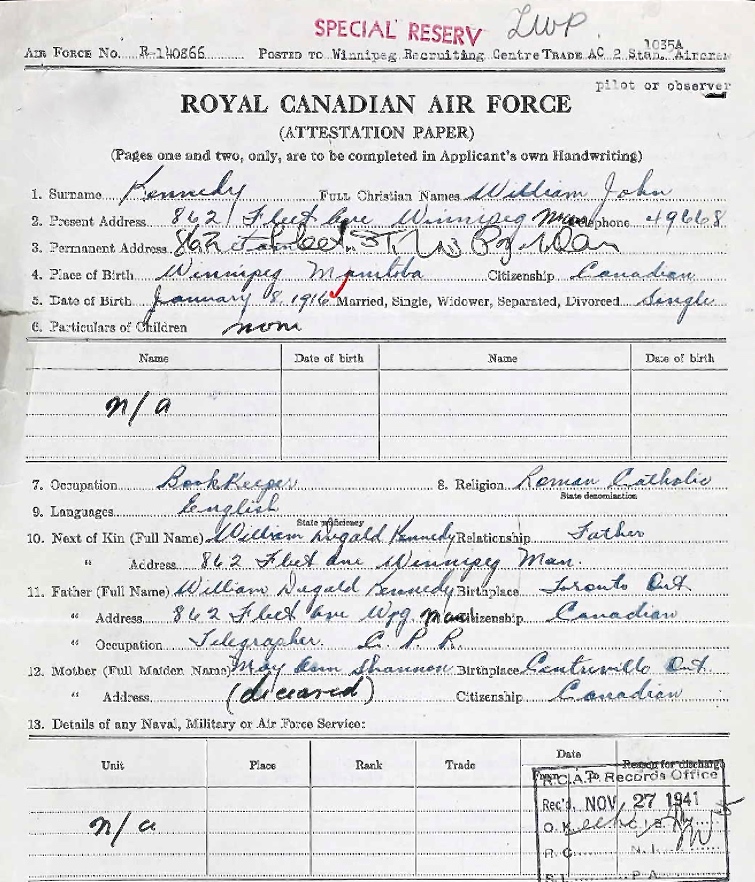 SPECIAL RESERV LWP
AIR FORCE NO. R-140866 POSTED TO Winnipeg Recruiting Centre TRADE AC 2 Stan. Aircrew 1035A
pilot or observer
ROYAL CANADIAN AIR FORCE
(ATTESTATION PAPER)
(Pages one and two, only, are to be completed in Applicant's own Handwriting)
1. Surname Kennedy FULL Christian Names William John
2. Present Address 862 Fleet Ave Winnipeg Man Telephone 49668
3. Permanent Address 862 Fleet
4. Place of Birth Winnipeg Manitoba Citizenship Canadian
5. Date of Birth January 8, 1916 Married, Single, Widower, Separated, Divorced Single
6. Particulars of Children none
Name Date of birth Name Date of birth
n/a
7. Occupation BookKeeper 8. Religion Roman Catholic
State denomination
9. Languages English
State proficiency
10. Next of Kin (Full Name) William Dugald Kennedy Relationship Father
" Address 862 Fleet ave Winnipeg Man.
11. Father (Full Name) William Dugald Kennedy Birthplace Toronto Ont
" Address 862 Fleet ave Wpg man Citizenship Canadian
" Occupation Telegrapher. C. P. R.
12. Mother (Full Maiden Name) May Ann Shannon Birthplace Centreville Ont.
" Address (deceased) Citizenship Canadian
13. Details of any Naval, Military or Air Force Service:
Unit Place Rank Trade Date Reason for discharge
From To
n/a
R.C.A.F. Records Office
Rec'd. NOV 27 1941
O.K. C.I.S.
R.C. N.I.
S.I. P.A.